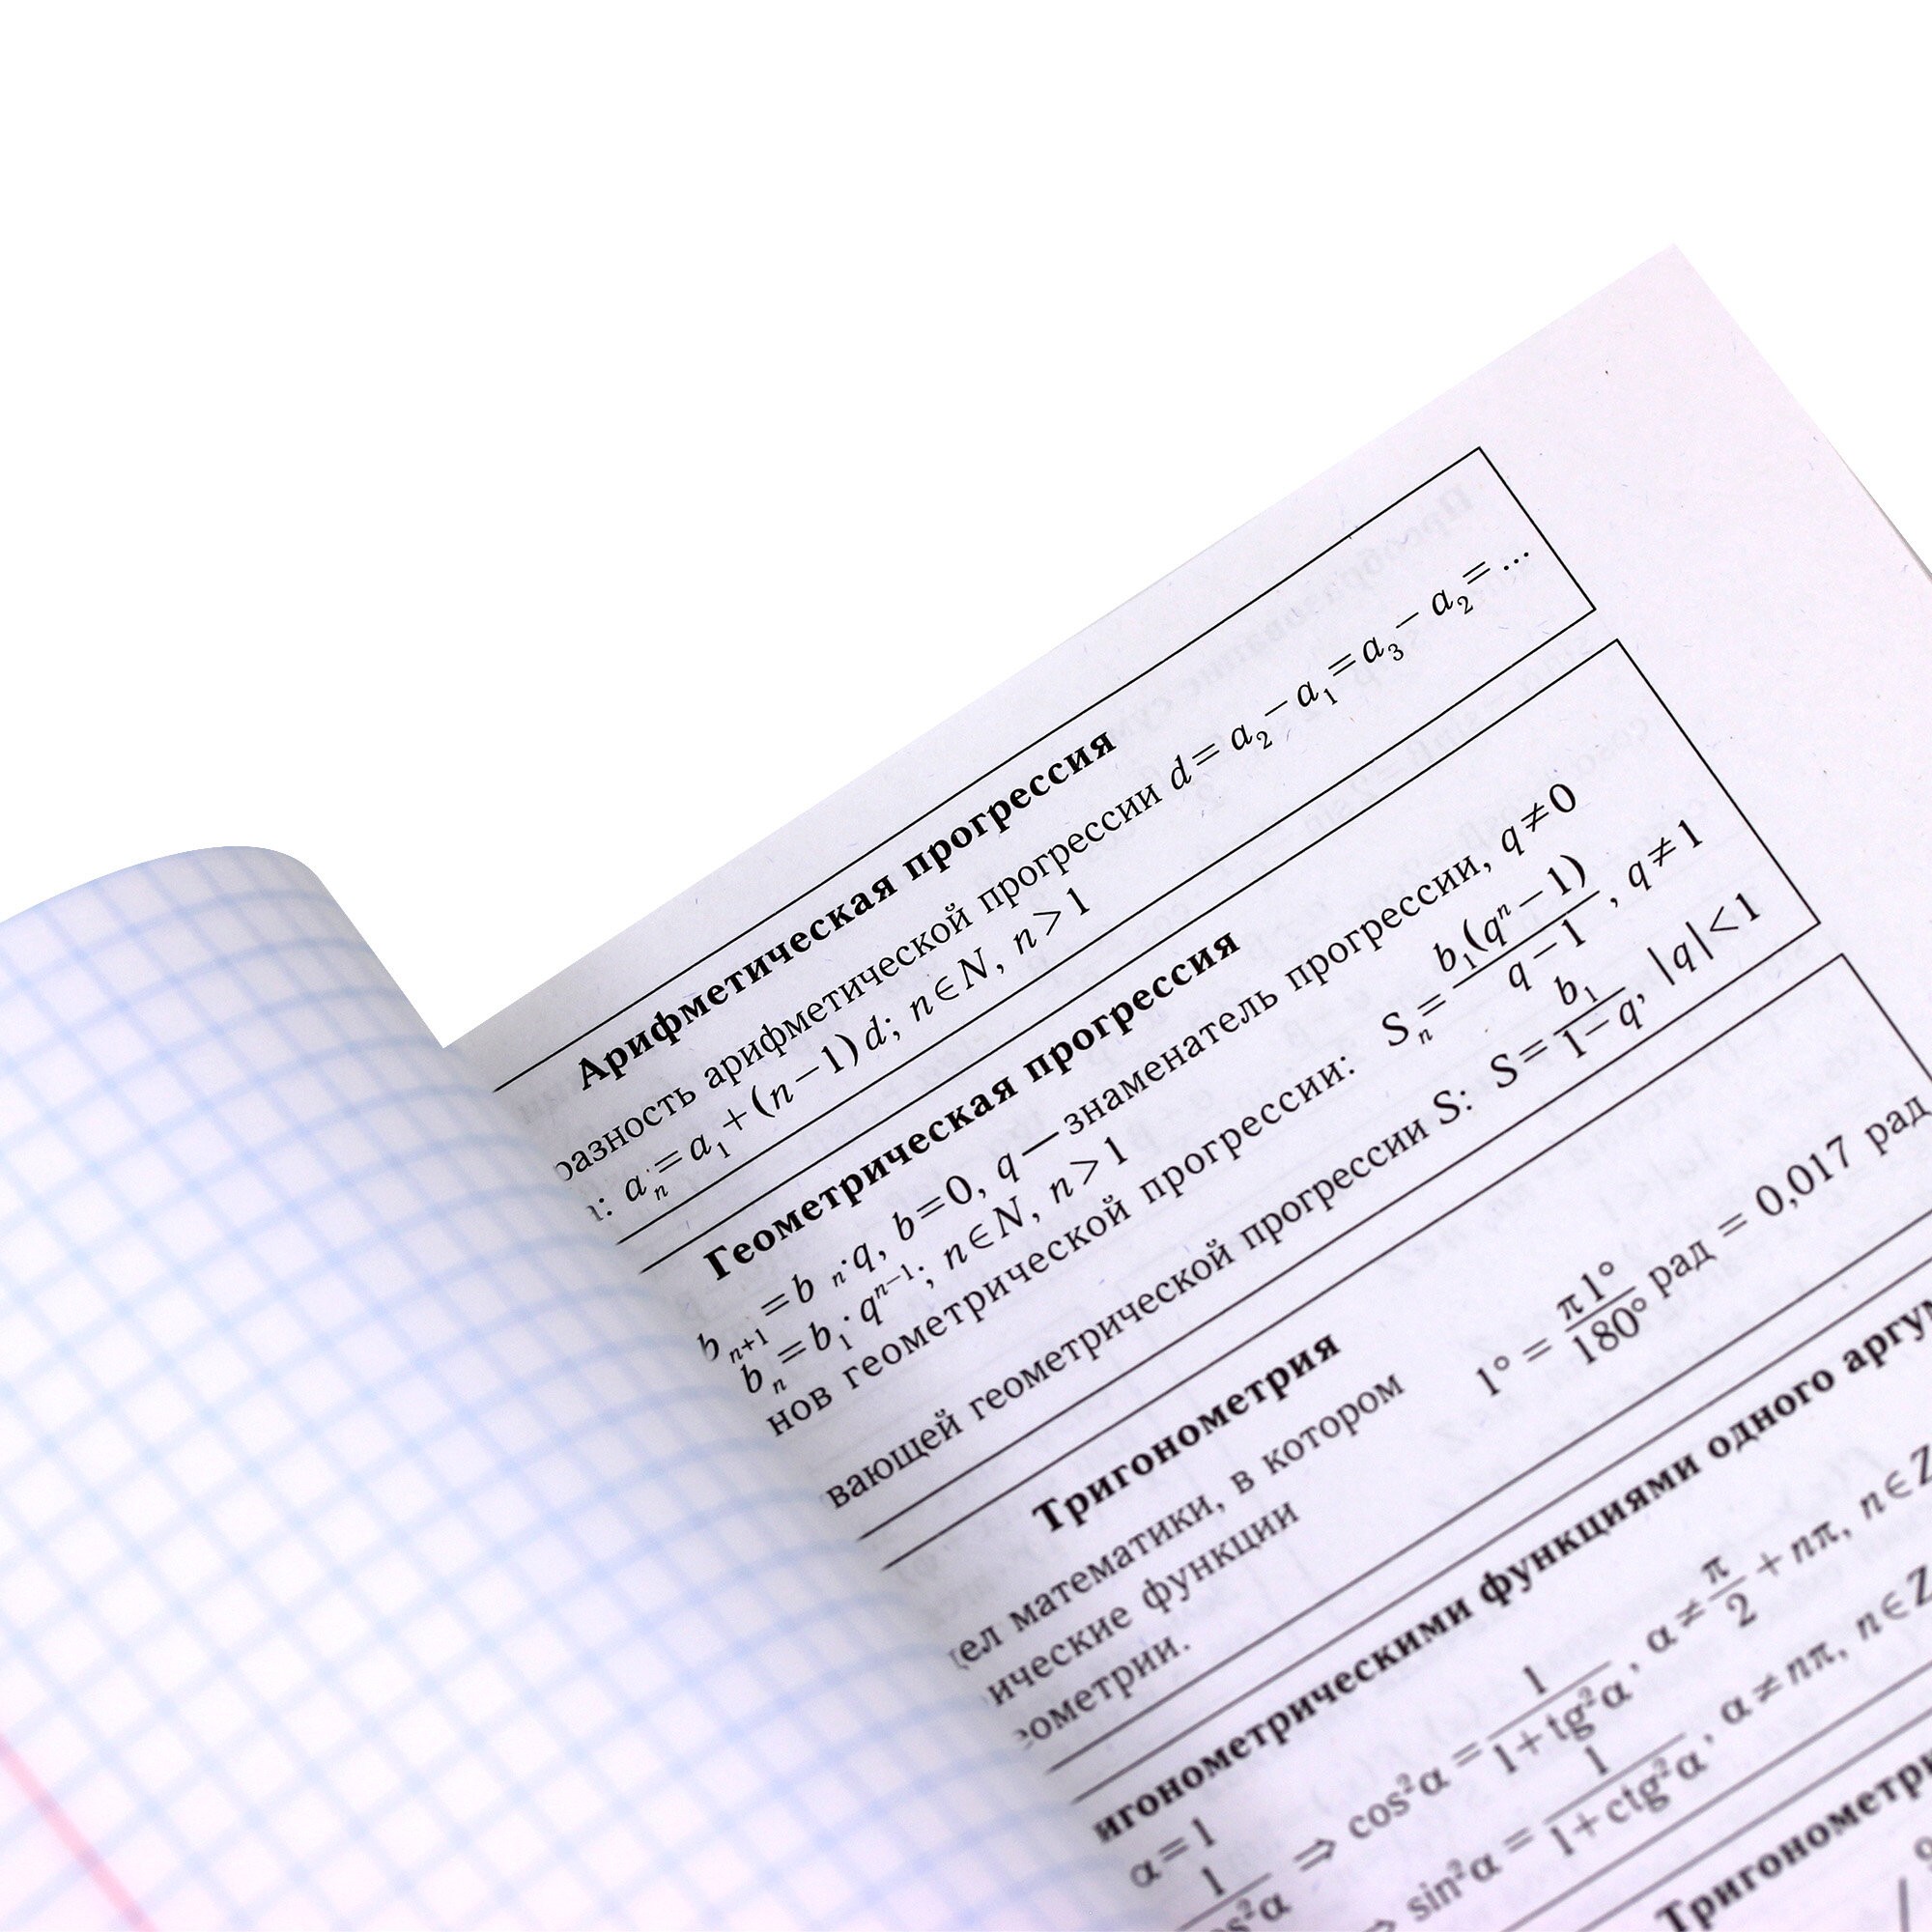 Арифметическая прогрессия
разность арифметической прогрессии d = a₂ − a₁ = a₃ − a₂ = ...
: aₙ = a₁ + (n − 1) d; n ∈ N, n > 1
Геометрическая прогрессия
bₙ₊₁ = b ₙ · q, b = 0, q — знаменатель прогрессии, q ≠ 0
bₙ = b₁ · qⁿ⁻¹; n ∈ N, n > 1
нов геометрической прогрессии: Sₙ = b₁(qⁿ − 1) / q − 1, q ≠ 1
вающей геометрической прогрессии S: S = b₁ / 1 − q, |q| < 1
Тригонометрия
ел математики, в котором 1° = π1° / 180° рад = 0,017 рад
ические функции
еометрии.
игонометрическими функциями одного аргу
α = 1
1 / os²α ⇒ cos²α = 1 / 1 + tg²α, α ≠ π / 2 + nπ, n ∈ Z
⇒ sin²α = 1 / 1 + ctg²α, α ≠ nπ, n ∈ Z
Тригонометри